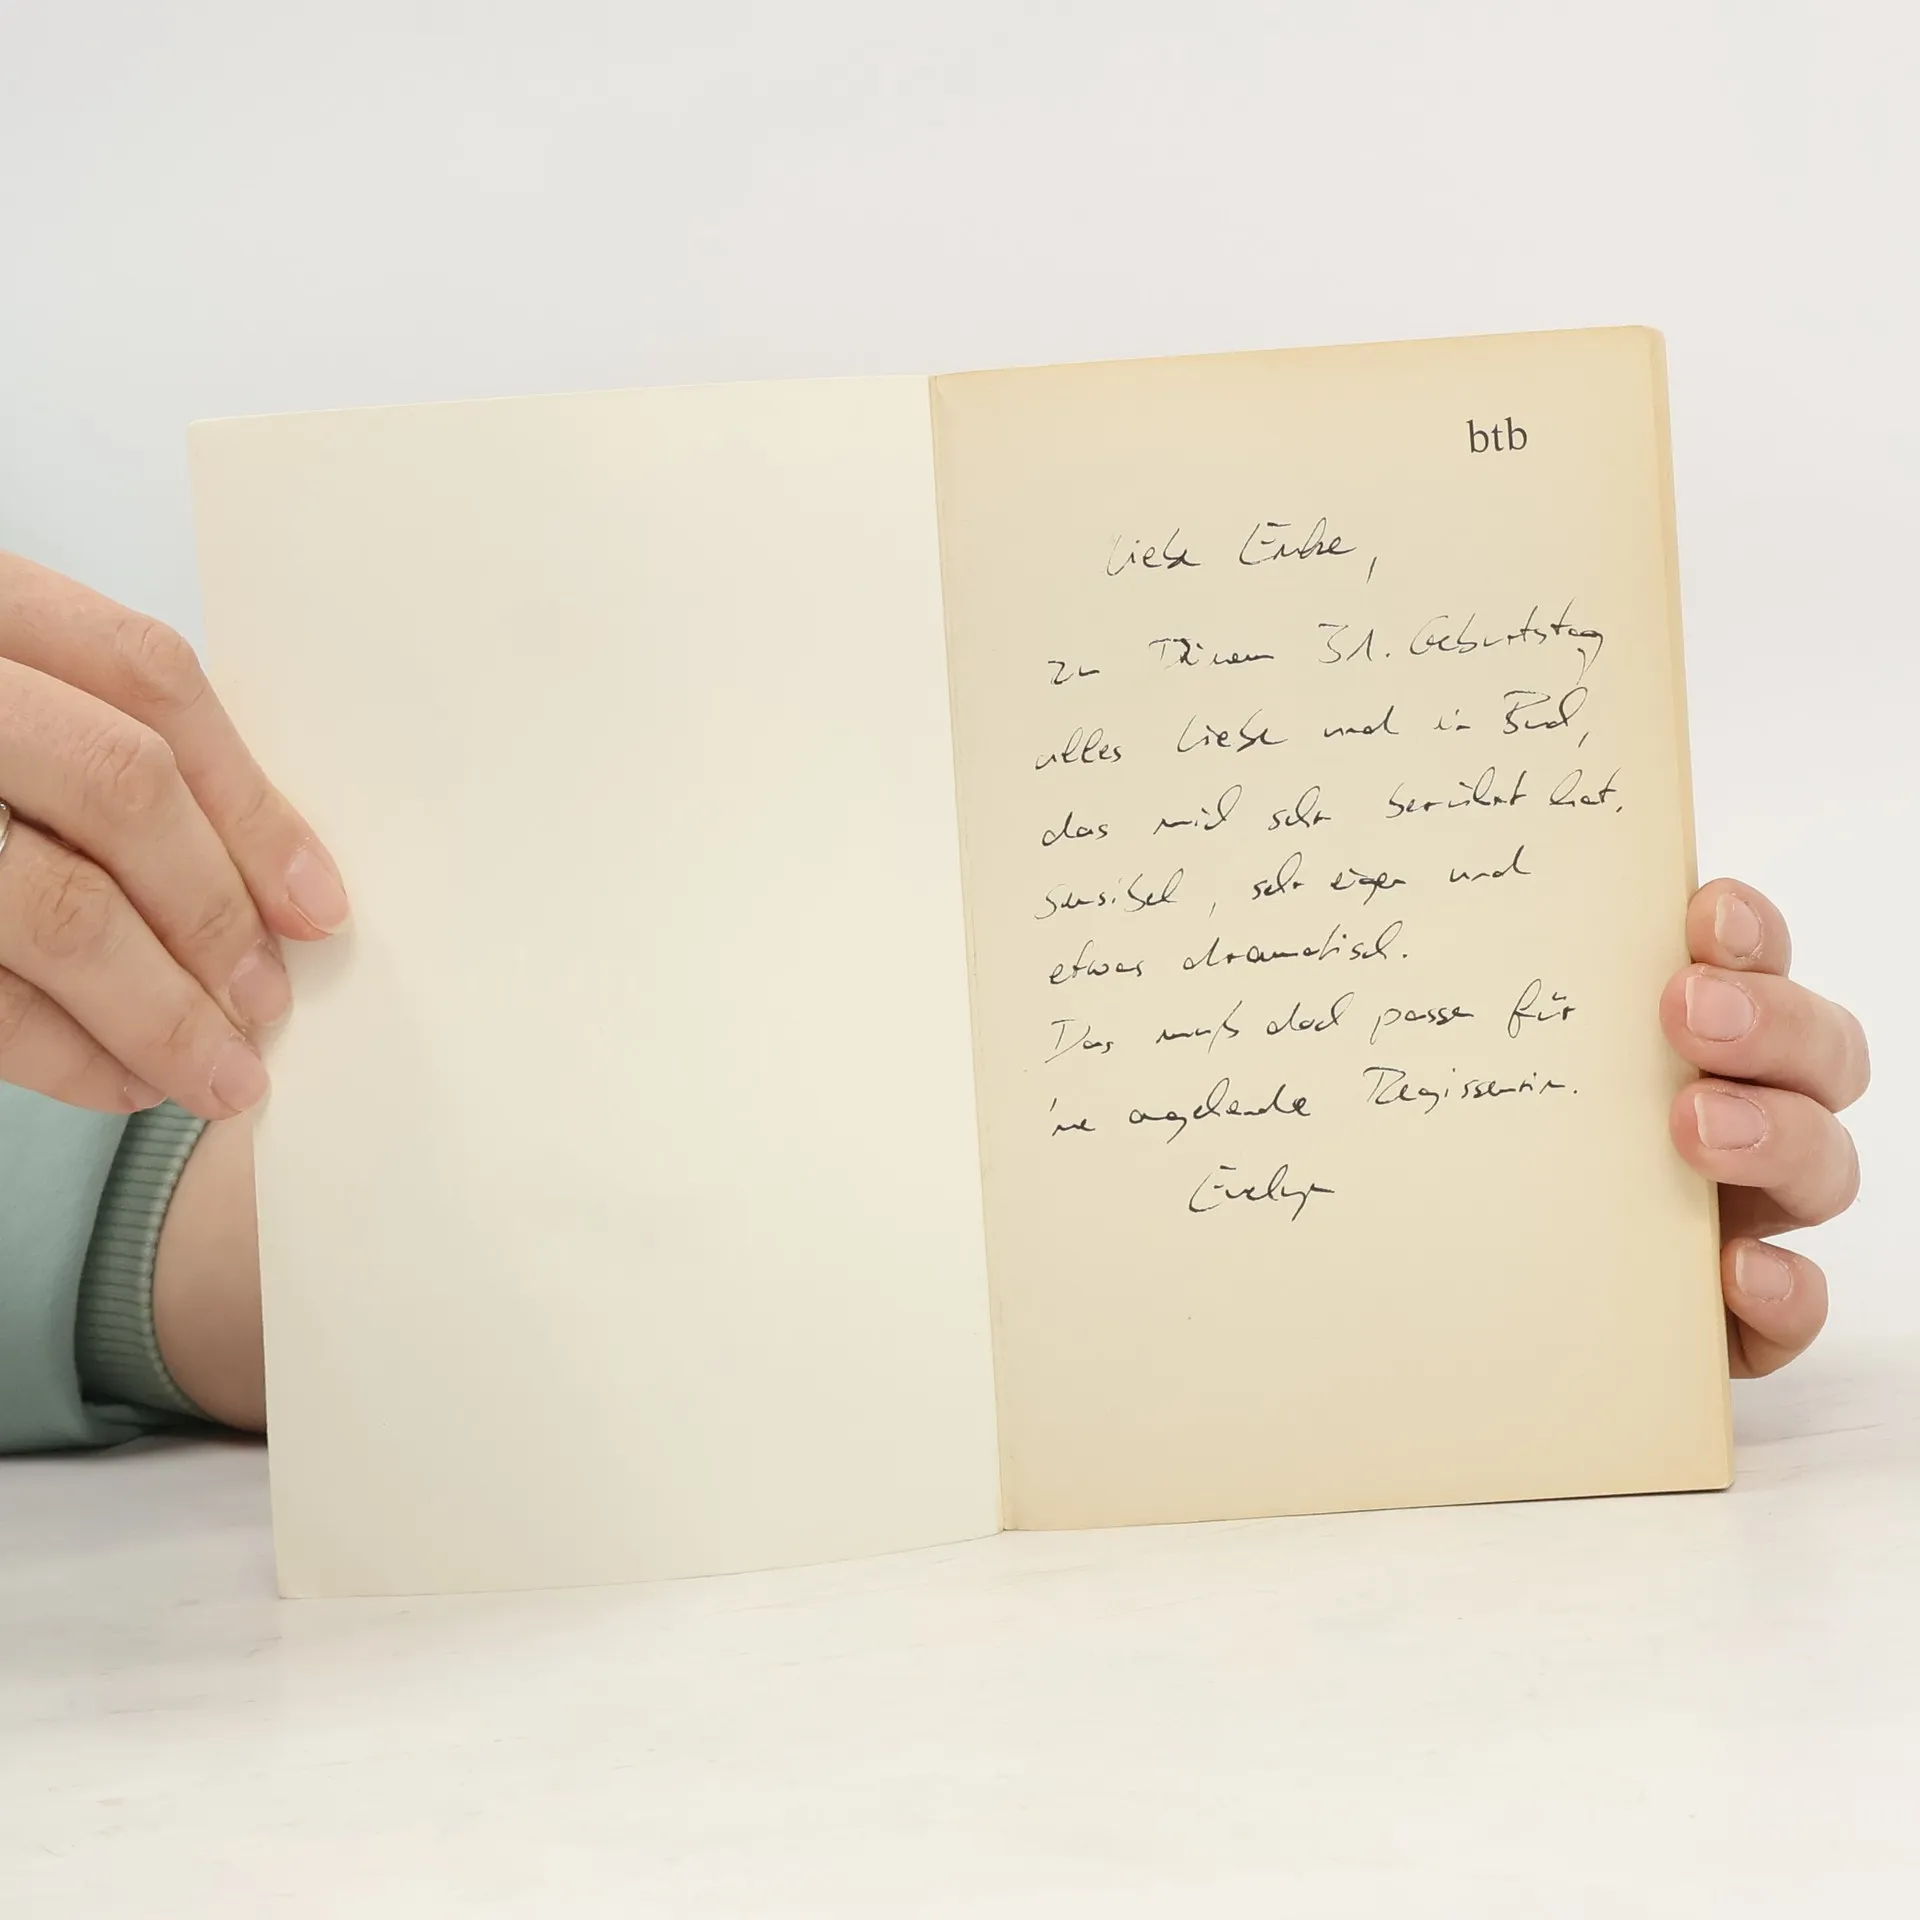 btb
Liebe Enke,
zu Deinem 31. Geburtstag
alles Liebe und ein Buch,
das mich sehr berührt hat.
Sensibel, sehr eigen und
etwas dramatisch.
Das muß doch passen für
'ne angehende Regisseurin.
Evelyn